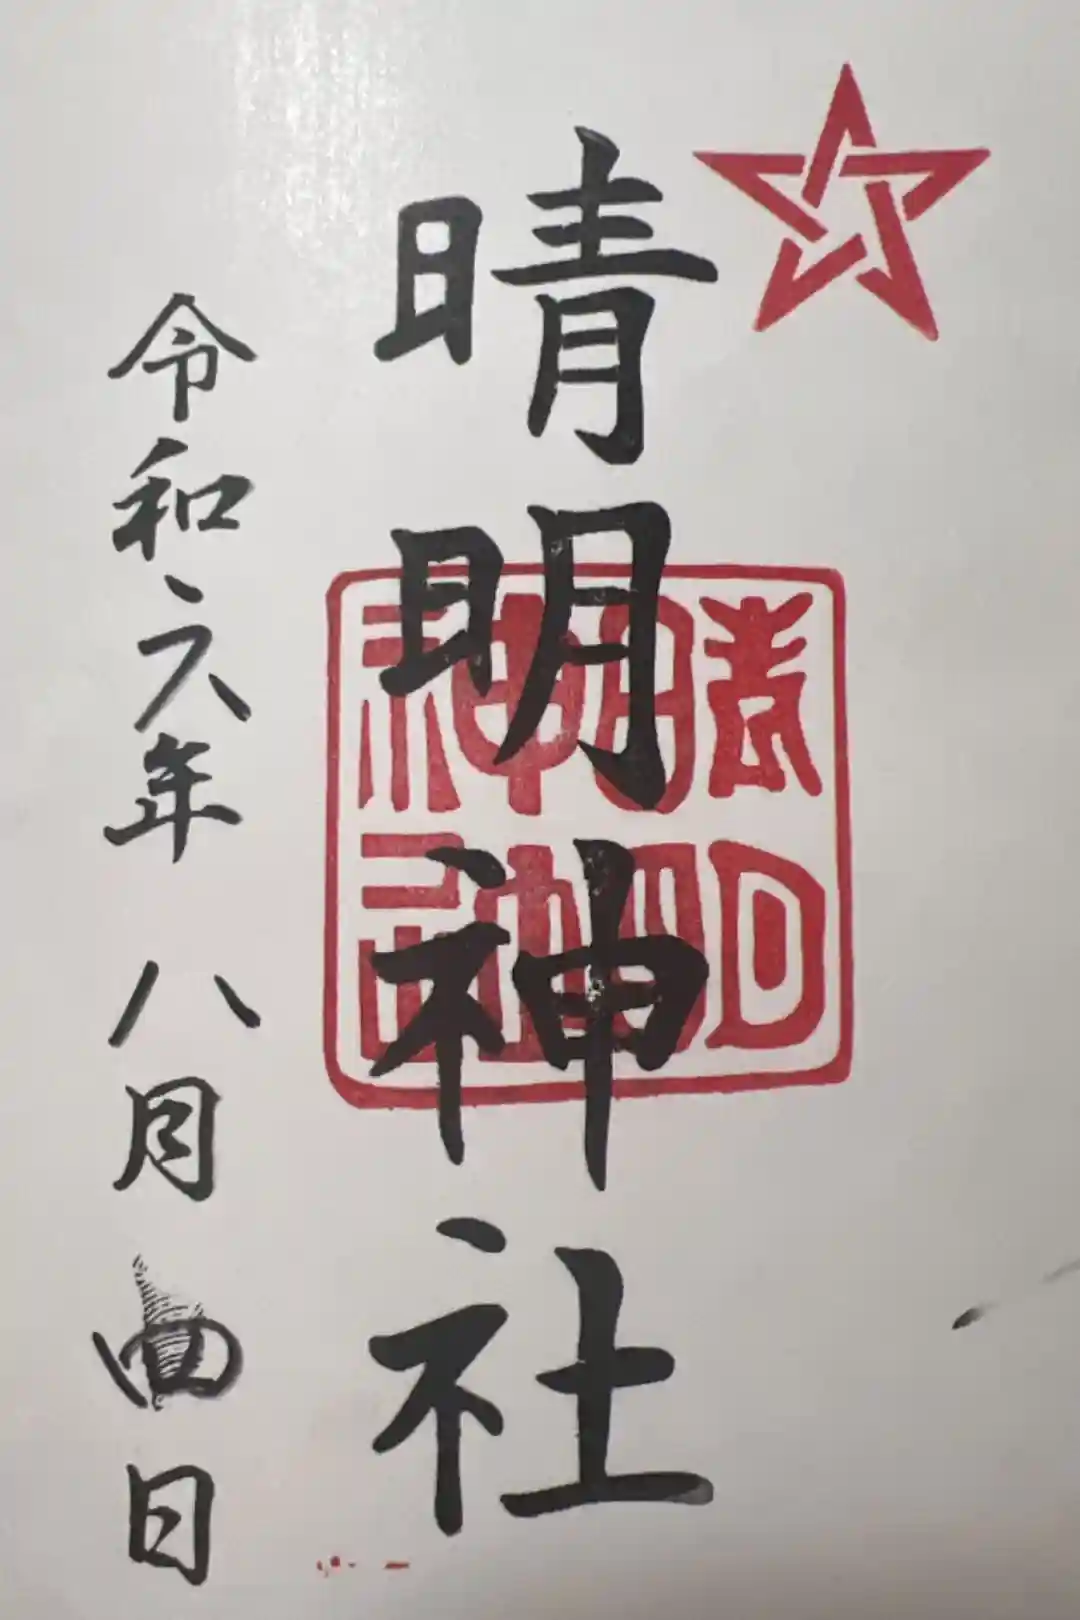 晴明神社
晴明神社
令和六年 八月四日